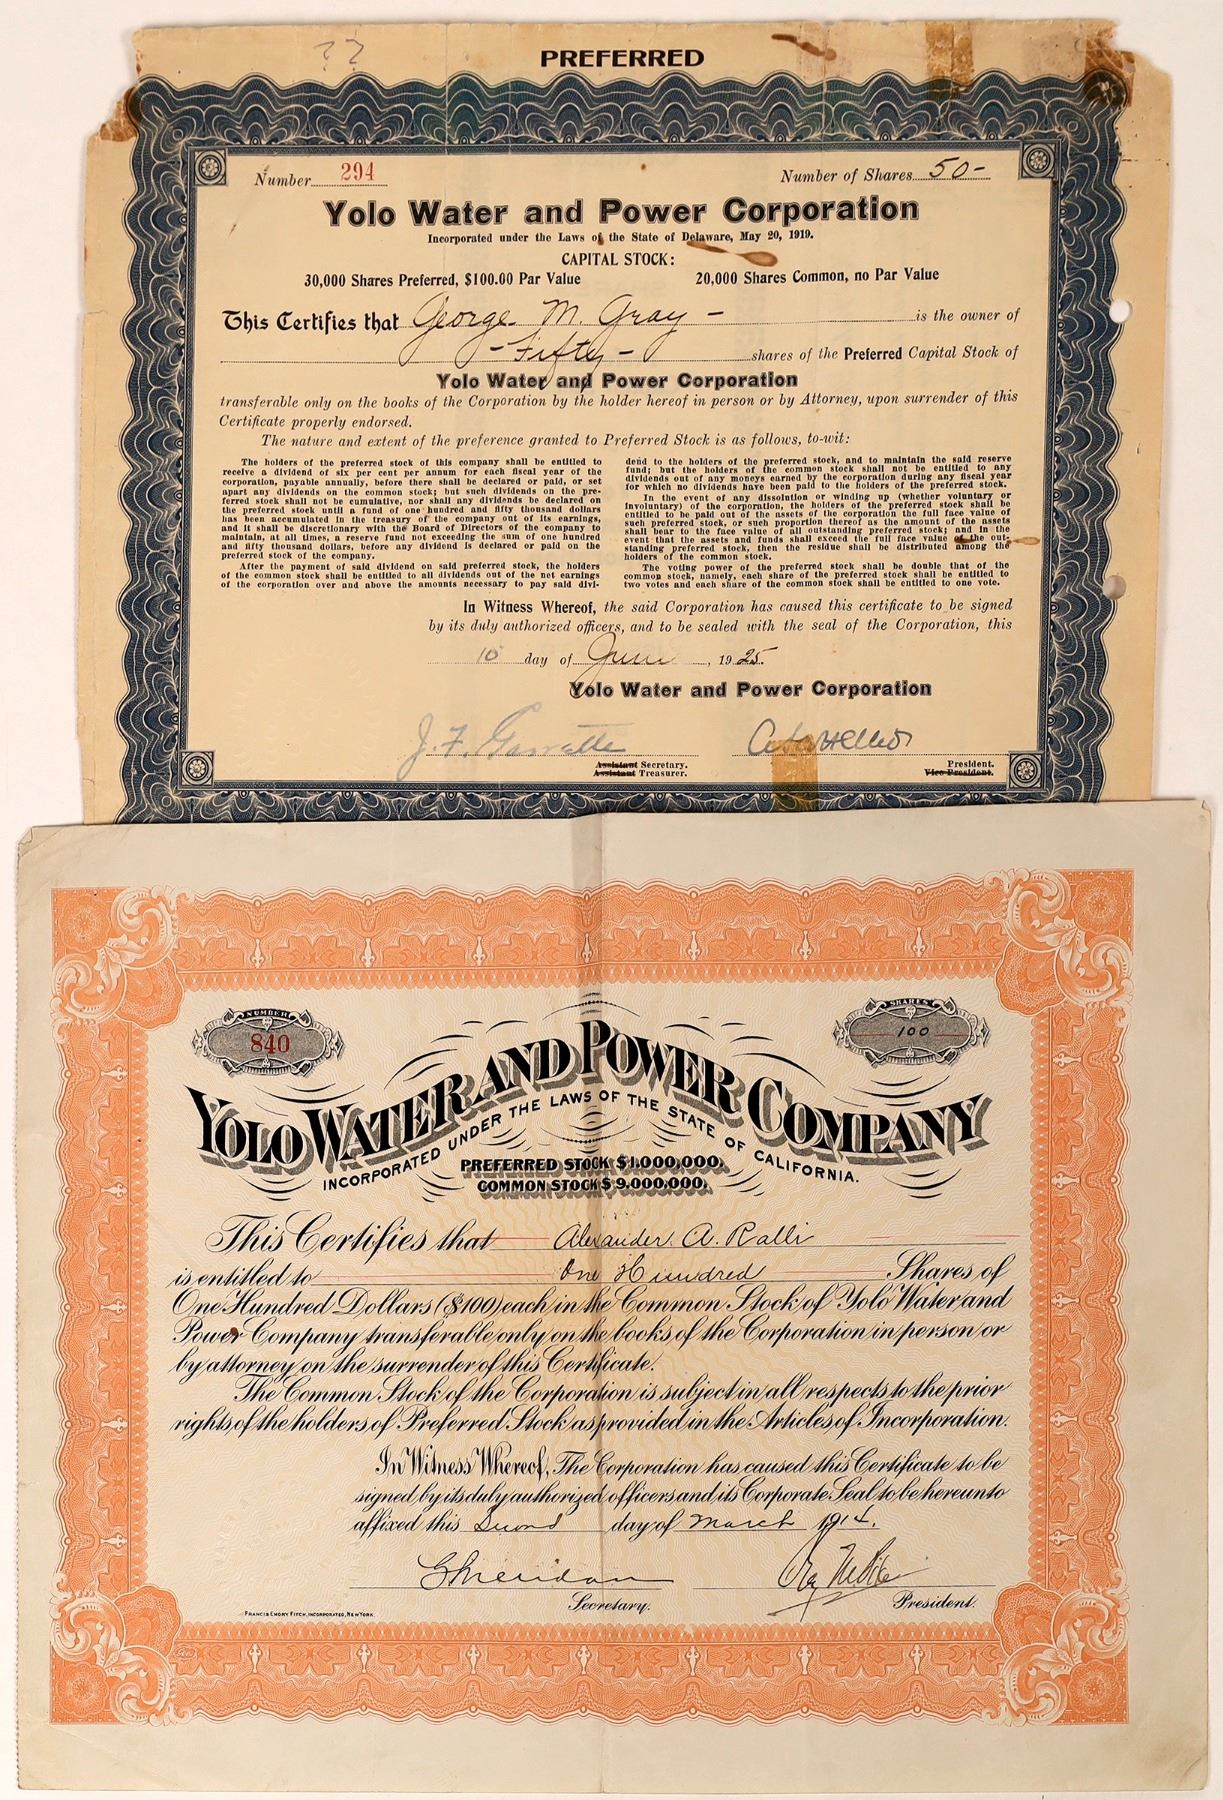 ??
PREFERRED
Number 294
Number of Shares 50-
Yolo Water and Power Corporation
Incorporated under the Laws of the State of Delaware, May 20, 1919.
CAPITAL STOCK:
30,000 Shares Preferred, $100.00 Par Value
20,000 Shares Common, no Par Value
This Certifies that George M. Gray - is the owner of
- Fifty - shares of the Preferred Capital Stock of
Yolo Water and Power Corporation
transferable only on the books of the Corporation by the holder hereof in person or by Attorney, upon surrender of this
Certificate properly endorsed.
The nature and extent of the preference granted to Preferred Stock is as follows, to-wit:
The holders of the preferred stock of this company shall be entitled to
receive a dividend of six per cent per annum for each fiscal year of the
corporation, payable annually, before there shall be declared or paid, or set
apart any dividends on the common stock; but such dividends on the pre-
ferred stock shall not be cumulative, nor shall any dividends be declared on
the preferred stock until a fund of one hundred and fifty thousand dollars
has been accumulated in the treasury of the company out of its earnings,
and it shall be discretionary with the Board of Directors of the company to
maintain, at all times, a reserve fund not exceeding the sum of one hundred
and fifty thousand dollars, before any dividend is declared or paid on the
preferred stock of the company.
After the payment of said dividend on said preferred stock, the holders
of the common stock shall be entitled to all dividends out of the net earnings
of the corporation over and above the amounts necessary to pay said divi-
dend to the holders of the preferred stock, and to maintain the said reserve
fund; but the holders of the common stock shall not be entitled to any
dividends out of any moneys earned by the corporation during any fiscal year
for which no dividends have been paid to the holders of the preferred stock.
In the event of any dissolution or winding up (whether voluntary or
involuntary) of the corporation, the holders of the preferred stock shall be
entitled to be paid out of the assets of the corporation the full face value of
such preferred stock, or such proportion thereof as the amount of the assets
shall bear to the face value of all outstanding preferred stock; and in the
event that the assets and funds shall exceed the full face value of the out-
standing preferred stock, then the residue shall be distributed among the
holders of the common stock.
The voting power of the preferred stock shall be double that of the
common stock, namely, each share of the preferred stock shall be entitled to
two votes and each share of the common stock shall be entitled to one vote.
In Witness Whereof, the said Corporation has caused this certificate to be signed
by its duly authorized officers, and to be sealed with the seal of the Corporation, this
10 day of June, 1925.
Yolo Water and Power Corporation
J. F. Garrette
Assistant Secretary.
Assistant Treasurer.
President.
Vice President.
NUMBER
840
SHARES
100
YOLO WATER AND POWER COMPANY
INCORPORATED UNDER THE LAWS OF THE STATE OF CALIFORNIA.
PREFERRED STOCK $1,000,000.
COMMON STOCK $9,000,000.
This Certifies that Alexander A. Ralli
is entitled to One Hundred Shares of
One Hundred Dollars ($100) each in the Common Stock of Yolo Water and
Power Company transferable only on the books of the Corporation in person or
by attorney on the surrender of this Certificate.
The Common Stock of the Corporation is subject in all respects to the prior
rights of the holders of Preferred Stock as provided in the Articles of Incorporation.
In Witness Whereof, The Corporation has caused this Certificate to be
signed by its duly authorized officers and its Corporate Seal to be hereunto
affixed this Second day of March 1914.
Sheridan
Secretary.
President.
FRANCIS EMORY FITCH, INCORPORATED, NEW YORK